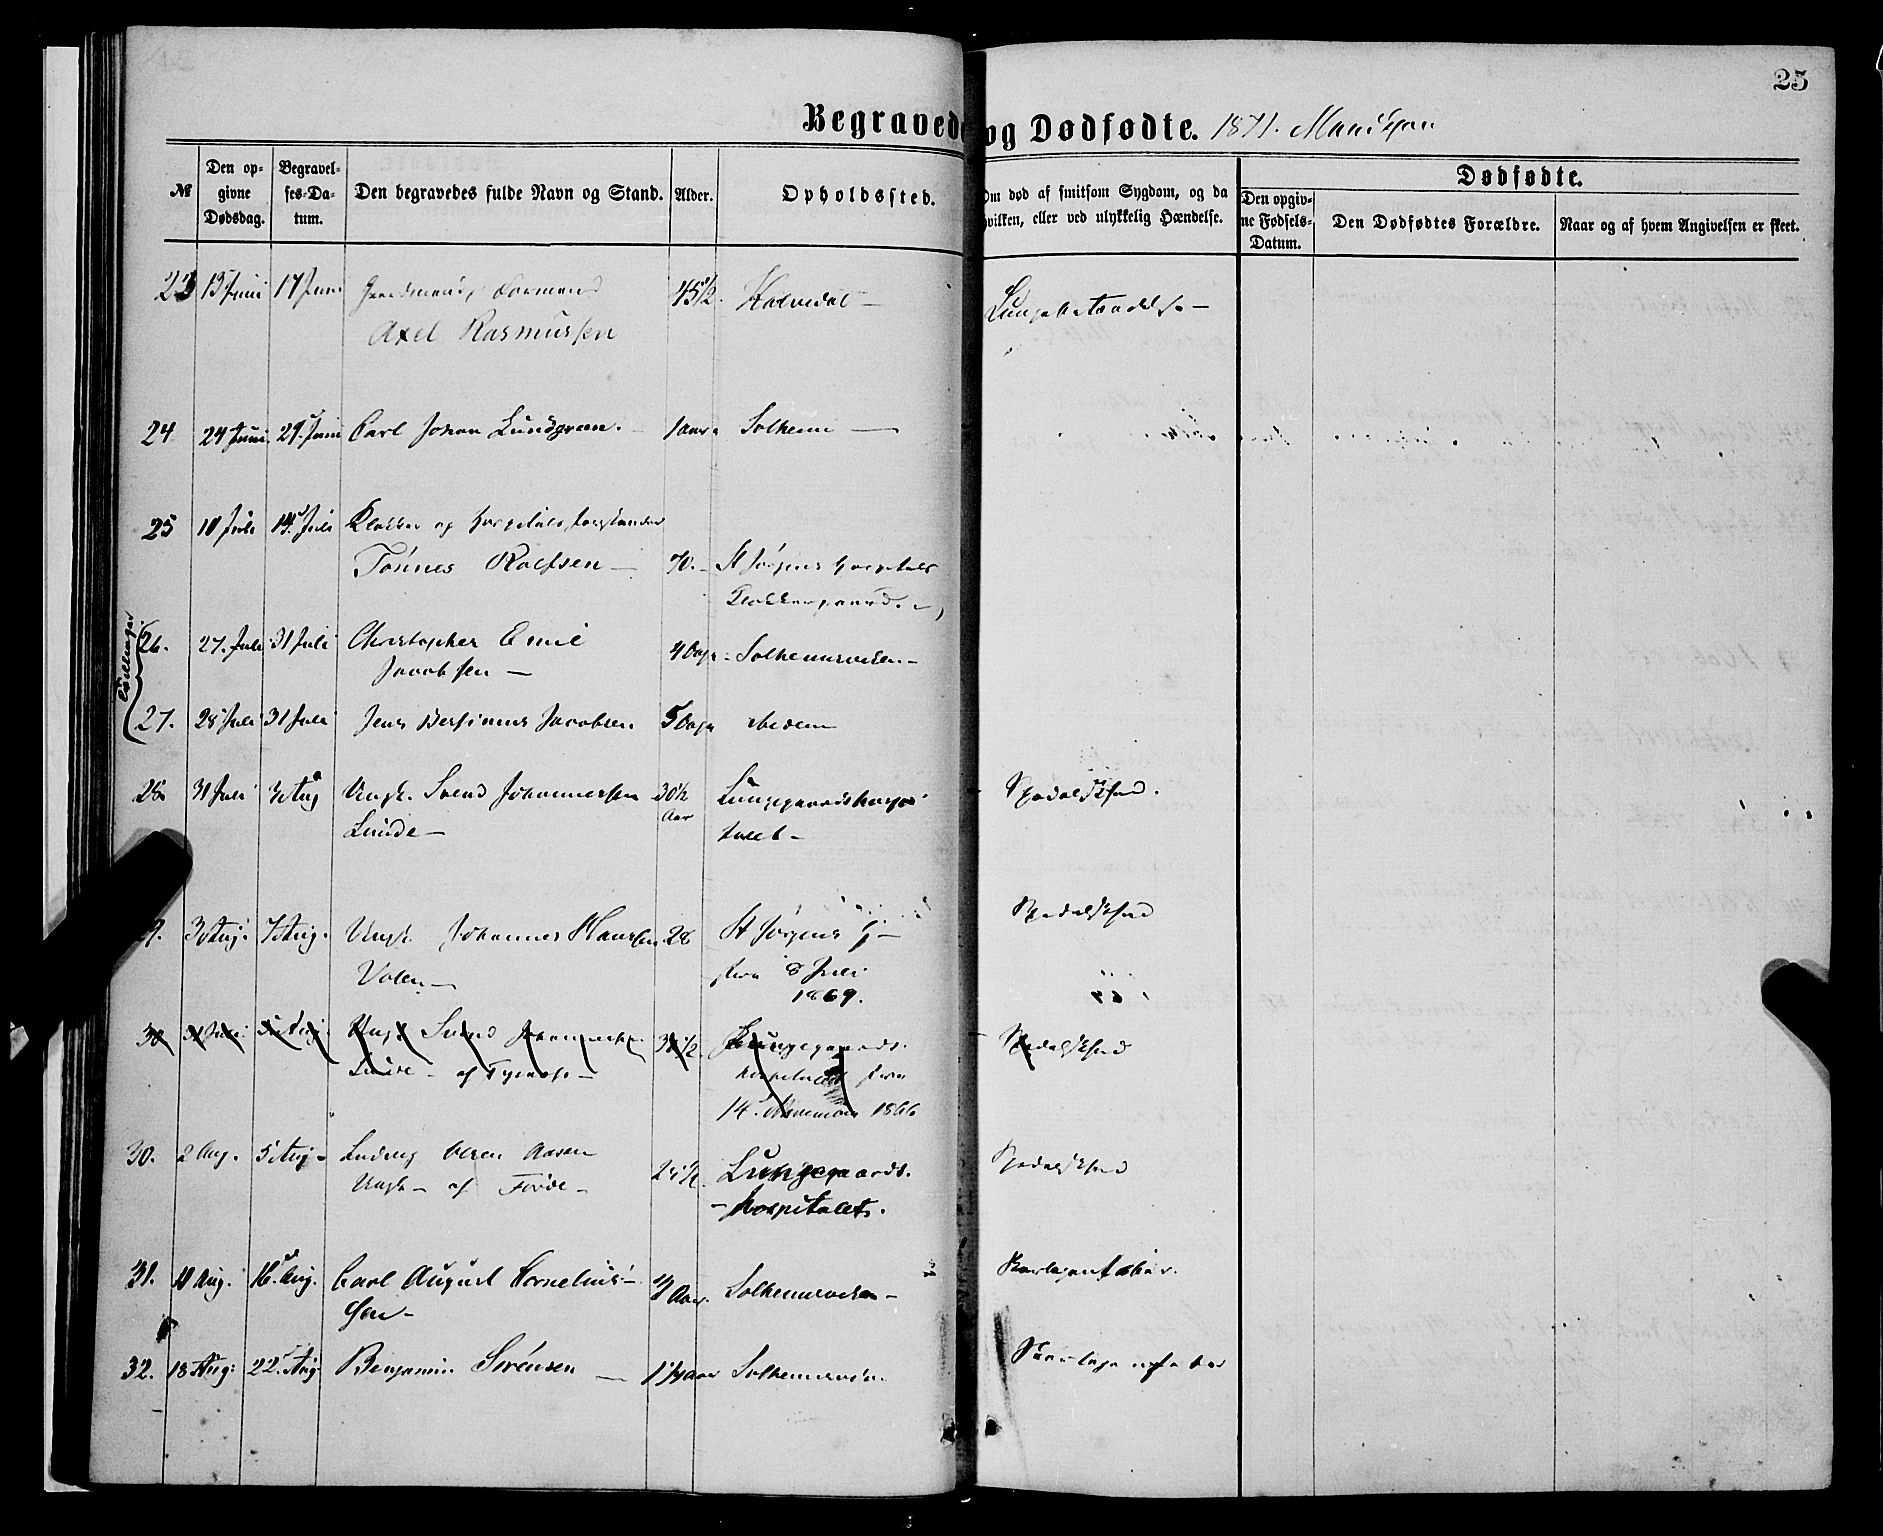 25
Begravede og Dødfødte. 1871. Mandkjøn
№
Den opgivne Dødsdag.
Begravelses-Datum.
Den begravedes fulde Navn og Stand.
Alder.
Opholdssted.
Om død af smitsom Sygdom, og da hvilken, eller ved ulykkelig Hændelse.
Dødfødte.
Den opgivne Fødsels-Datum.
Den Dødfødtes Forældre.
Naar og af hvem Angivelsen er skeet.
23 13 Juni 17 Juni 45 1/2. Kalvedal – Lungebetændelse –
Axel Rasmussen
24 24 Juni 29. Juni Carl Johan Lundgreen. 1 aar Solheim –
25 10 Juli 14. Juli Klokker og Hospitalsforstander
Tönnes Rolfsen – 70. – St Jørgens Hospitals
Klokkergaard. –
Tvillinger
26. 27. Juli 31 Juli Christopher Emil 4 Dage – Solheimsviken –
Jacobsen –
27. 28 Juli 31 Juli Jens Jacobsen 5 Dage ibidem
28 31 Juli 3 Aug Ungk. Svend Johannessen 30 1/2 Aar Lungegaardshospi Spedalskhed.
Lunde – talet –
29. 3 Aug. 7 Aug. Ungk. Johannes Hansen 28 St Jørgens H – Spedalskhed
fra 8 Juli
1869.
30 31 Juli Aug. Ungk Svend Johannessen 30 1/2. Lungegaards. Spedalskhed
Lunde – af hospitalet fra
14. November 1866
30. 2 Aug. 5 Aug – Ludvig Aasen 24 1/2. Lungegaards. Spedalskhed
Ungk – af Førde – – hospitalet.
31. 11 Aug. 16. Aug. Carl August Cornelius- Aar. Solheimsviken – Skarlagensfeber.
sen –
32. 18 Aug: 22. Aug Benjamin Sörensen – aar Solheimsviken Skarlagensfeber